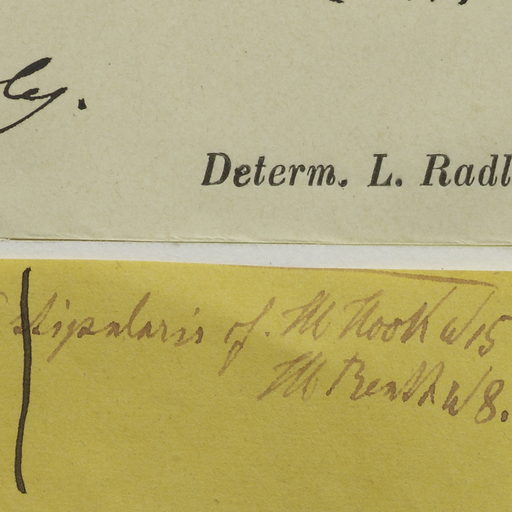 ley.
Determ. L. Radl
stipularis of. M Hook W 15
M Benth W 8.